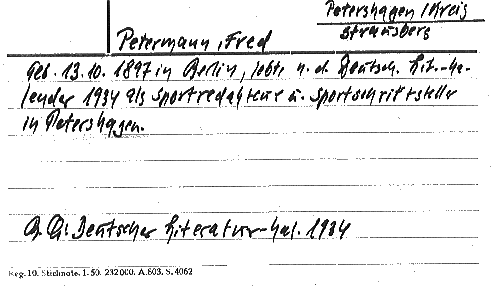 Petershagen / Kreis
Strausberg
Petermann, Fred
Geb. 13.10. 1897 in Berlin, lebte n. d. Deutsch. Lit.-Ka-
lender 1934 als Sportredakteur u. Sportschriftsteller
in Petershagen.
Qu: Deutscher Literatur-Kal. 1934
Reg. 10. Stichnote. 1-50. 232000. A.603. S. 4062